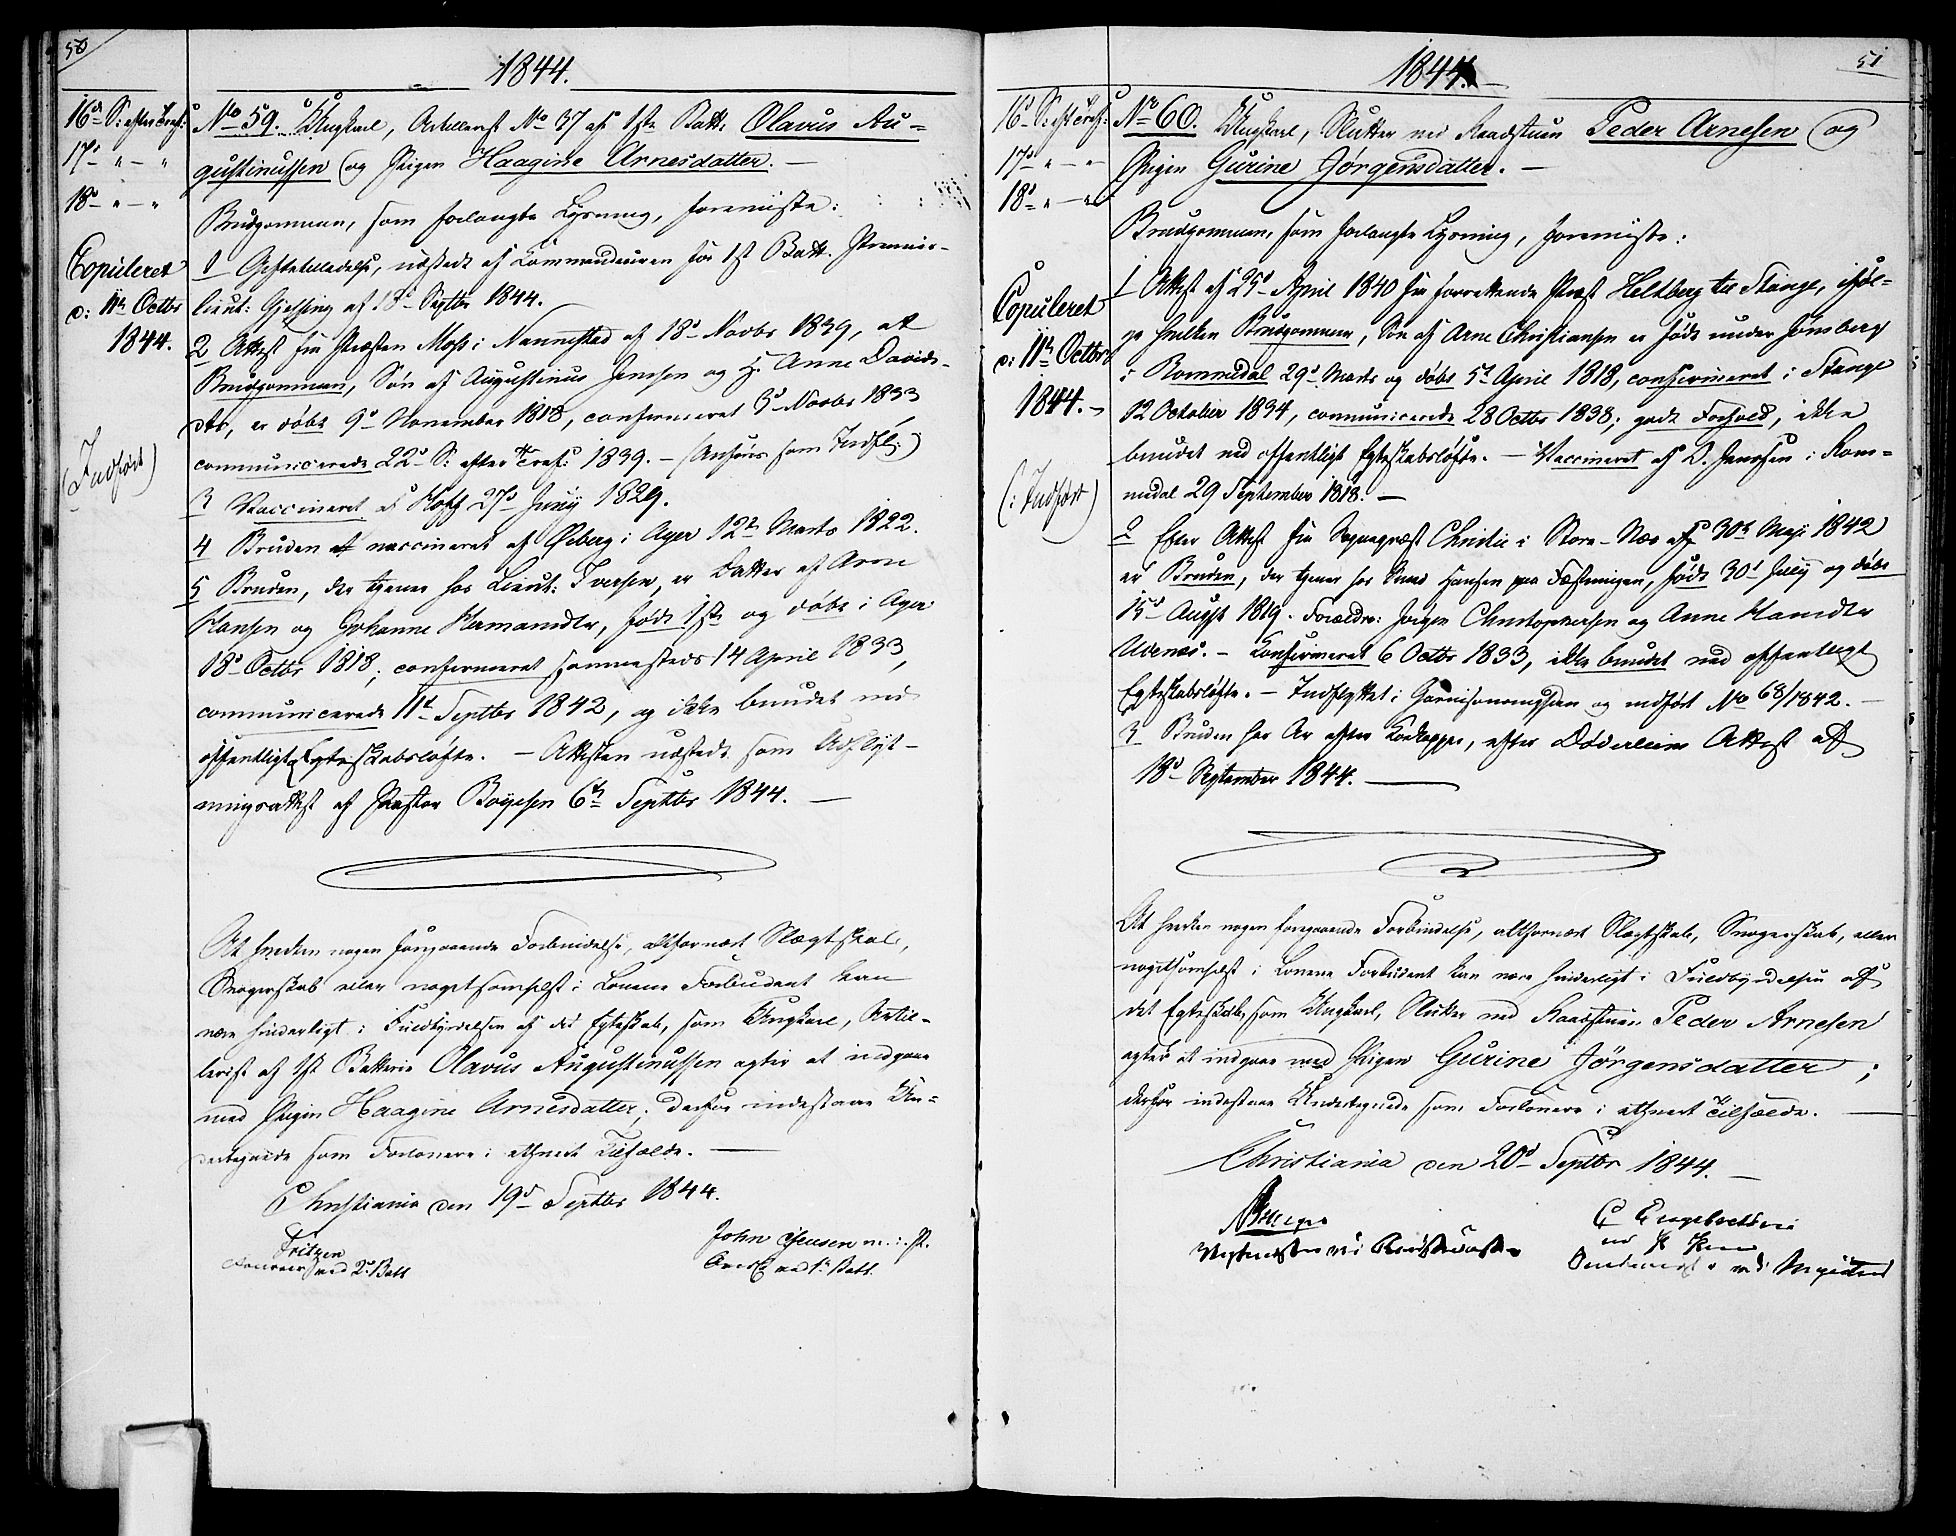 50
1844.
16d S: efter Tref:
17d " — "
18d " — "
Copuleret
d: 11te Octbr
1844.
(Indført)
No 59. Ungkarl, Artillerist No 37 af 1ste Batt: Olavus Au-
gustinussen og Pigen Haagine Arnesdatter. —
Brudgommen, som forlangte Lysning, foreviste:
1 Giftetilladelse, udstedt af Commandeuren for 1st Batt. Premier-
lieut: Gjessing af 18d Septbr 1844.
2 Attest fra Præsten Moss i Nannestad af 18d Novbr 1839, at
Brudgommen, Søn af Augustinus Jensen og H. Anne Davids-
dtr, er døbt 9d November 1818, confirmeret 3d Novbr 1833
communicerede 22d S: efter Tref: 1839. — (Anføres som Indfl:)
3 Vaccineret af Hoff 27d Juny 1829.
4 Bruden er vaccineret af Øeberg i Ager 12te Marts 1822.
5 Bruden, der tjener hos Lieut: Iversen, er Datter af Arne
Hansen og Johanne Hermansdtr, født 1ste og døbt i Ager
18d Octbr 1818; confirmeret sammesteds 14 April 1833,
communicerede 11te Septbr 1842, og ikke bundet ved
offentligt Egteskabsløfte. — Attesten udstedt som Udflyt-
ningsattest af Pastor Boyesen 6te Septbr 1844. —
At hverken nogen foregaaende Forbindelse, altfornært Slægtskab,
Svogerskab eller nogetsomhelst i Lovene Forbudent kan
være hinderligt i Fuldbyrdelsen af det Egteskab, som Ungkarl, Artil-
lerist af 1st Batterie Olavus Augustinussen agter at indgaae
med Pigen Haagine Arnesdatter; derfor indestaae Un-
dertegnede som Forlovere i ethvert Tilfælde. —
Christiania den 19d Septbr 1844.
Fritzen
Fourer ved 2d Batt
John Jensen m. : P.
ved 1ste Batt.
51
1844.
16d S: eft Tref:
17d " — "
18d " — "
Copuleret
d: 11te Octbr
1844. —
(: Indført)
No 60. Ungkarl, Slutter ved Raadstuen Peder Arnesen og
Pigen Gurine Jørgensdatter. —
Brudgommen, som forlangte Lysning, foreviste:
1 Attest af 25d April 1840 fra forrettende Præst Heltberg til Stange, iføl-
ge hvilken Brudgommen, Søn af Arne Christiansen er født under Jønsberg
i Rommedal 29d Marts og døbt 5te April 1818, confirmeret i Stange
12 October 1834, communicerede 28 Octbr 1838; godt Forhold, ikke
bundet ved offentligt Egteskabsløfte. — Vaccineret af D. Jenssen i Rom-
medal 29 September 1818. —
2 Efter Attest fra Sognepræst Christie i Store-Næs af 30te Maji 1842
er Bruden, der tjener hos Knud Hansen paa Fæstningen, født 30d July og døbt
15d Augst 1819. Forældre: Jørgen Christophersen og Anne Hansdtr
Udenæs. — Konfirmeret 6 Octbr 1833, ikke bundet ved offentligt
Egteskabsløfte. — Indflyttet i Garnisonsmenigheden og indført No 68/1842. —
3 Bruden har Ar efter Kokopper, efter Døderleins Attest af
18d September 1844. —
At hverken nogen foregaaende Forbindelse, altfornært Slægtskab, Svogerskab, eller
nogetsomhelst i Lovene Forbudent kan være hinderligt i Fuldbyrdelsen af
det Egteskab, som Ungkarl, Slutter ved Raadstuen Peder Arnesen
agter at indgaae med Pigen Gurine Jørgensdatter;
derfor indestaae Undertegnede som Forlovere i ethvert Tilfælde. —
Christiania den 20d Septbr 1844. —
C Engebretsen